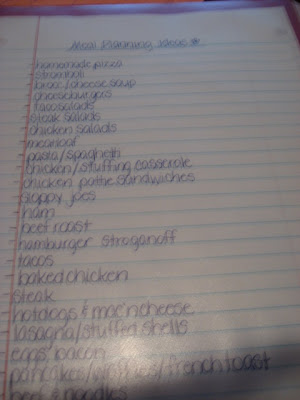 Meal Planning Ideas *
- homemade pizza
- stromboli
- brocc/cheese soup
- cheeseburgers
- taco salads
- steak salads
- chicken salads
- meatloaf
- pasta/spaghetti
- chicken/stuffing casserole
- chicken pattie sandwiches
- sloppy joes
- ham
- beef roast
- hamburger stroganoff
- tacos
- baked chicken
- steak
- hotdogs & mac'n cheese
- lasagna/stuffed shells
- eggs/bacon
- pancakes/waffles/french toast
- beef & noodles